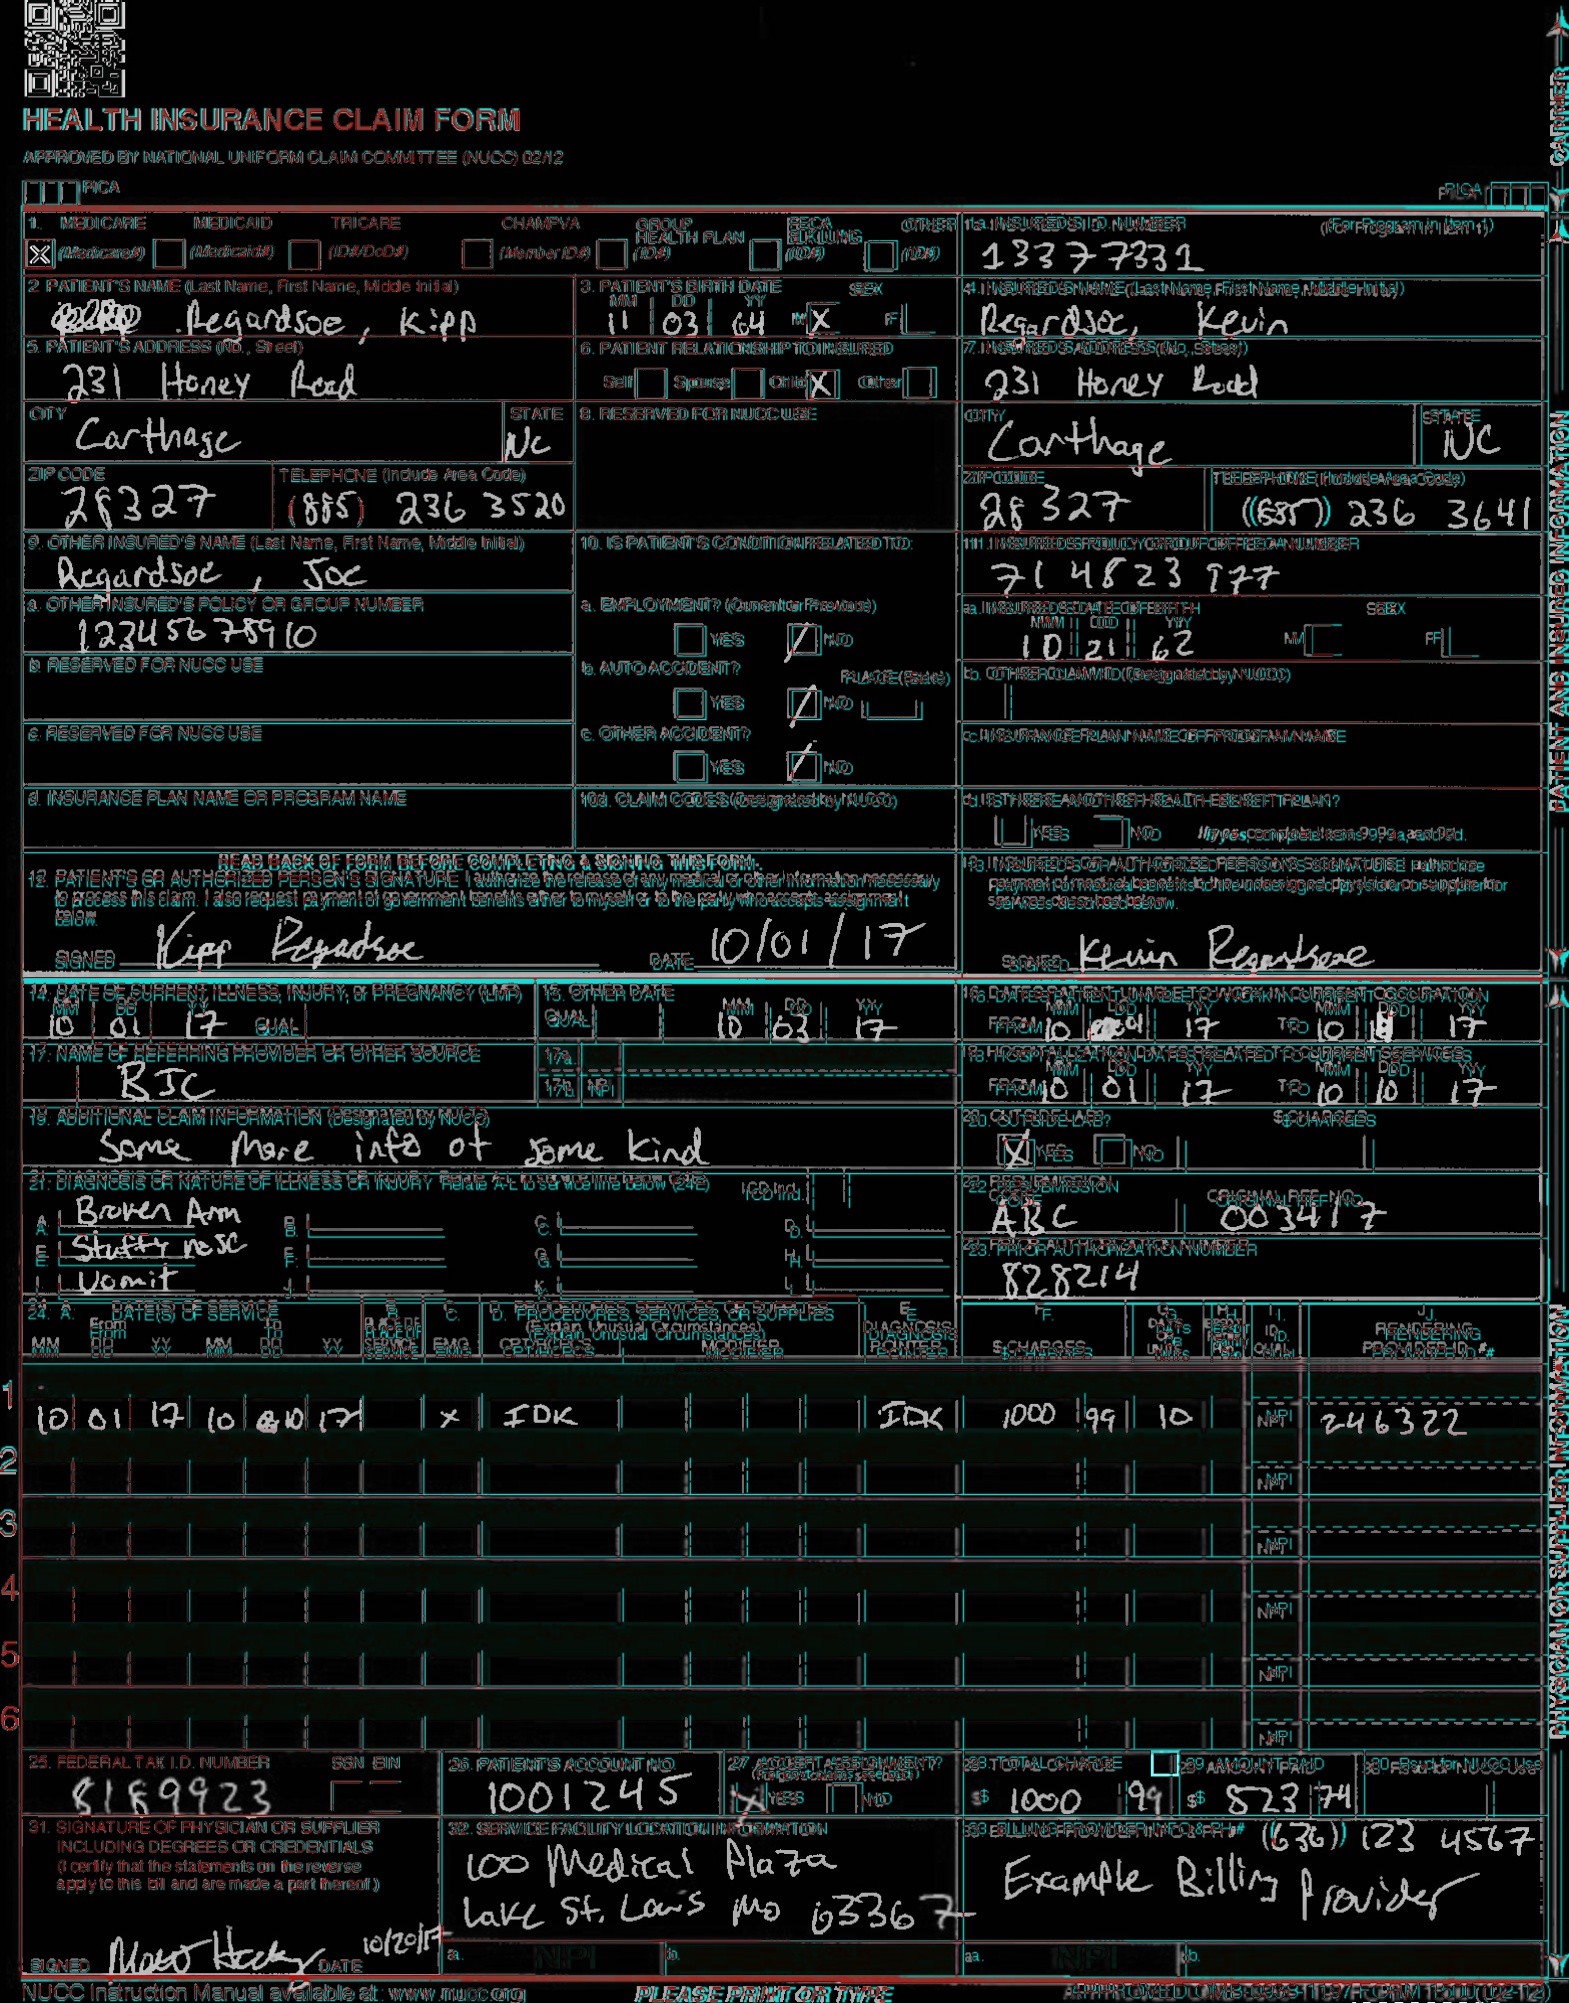 HEALTH INSURANCE CLAIM FORM
APPROVED BY NATIONAL UNIFORM CLAIM COMMITTEE (NUCC) 02/12
PICA PICA
CARRIER
1. MEDICARE MEDICAID TRICARE CHAMPVA GROUP HEALTH PLAN FECA BLK LUNG OTHER
X (Medicare#) (Medicaid#) (ID#/DoD#) (Member ID#) (ID#) (ID#) (ID#)
1a. INSURED'S I.D. NUMBER (For Program in Item 1)
13377331
2. PATIENT'S NAME (Last Name, First Name, Middle Initial)
Regardsoe, Kipp
3. PATIENT'S BIRTH DATE SEX
MM DD YY
11 03 64 M X F
4. INSURED'S NAME (Last Name, First Name, Middle Initial)
Regardsoe, Kevin
5. PATIENT'S ADDRESS (No., Street)
231 Honey Road
6. PATIENT RELATIONSHIP TO INSURED
Self Spouse Child X Other
7. INSURED'S ADDRESS (No., Street)
231 Honey Road
CITY STATE
Carthage NC
8. RESERVED FOR NUCC USE
CITY STATE
Carthage NC
ZIP CODE TELEPHONE (Include Area Code)
28327 (885) 236 3520
ZIP CODE TELEPHONE (Include Area Code)
28327 236 3641
9. OTHER INSURED'S NAME (Last Name, First Name, Middle Initial)
Regardsoe, Joe
10. IS PATIENT'S CONDITION RELATED TO:
11. INSURED'S POLICY GROUP OR FECA NUMBER
71 4823 977
a. OTHER INSURED'S POLICY OR GROUP NUMBER
12345678910
a. EMPLOYMENT? (Current or Previous)
YES NO
a. INSURED'S DATE OF BIRTH SEX
MM DD YY
10 21 62 M F
b. RESERVED FOR NUCC USE
b. AUTO ACCIDENT? PLACE (State)
YES NO
b. OTHER CLAIM ID (Designated by NUCC)
c. RESERVED FOR NUCC USE
c. OTHER ACCIDENT?
YES NO
c. INSURANCE PLAN NAME OR PROGRAM NAME
d. INSURANCE PLAN NAME OR PROGRAM NAME
10d. CLAIM CODES (Designated by NUCC)
d. IS THERE ANOTHER HEALTH BENEFIT PLAN?
YES NO If yes, complete items 9, 9a, and 9d.
PATIENT AND INSURED INFORMATION
READ BACK OF FORM BEFORE COMPLETING & SIGNING THIS FORM.
12. PATIENT'S OR AUTHORIZED PERSON'S SIGNATURE I authorize the release of any medical or other information necessary
to process this claim. I also request payment of government benefits either to myself or to the party who accepts assignment
below.
SIGNED Kipp Regardsoe DATE 10/01/17
13. INSURED'S OR AUTHORIZED PERSON'S SIGNATURE I authorize
payment of medical benefits to the undersigned physician or supplier for
services described below.
SIGNED Kevin Regardsoe
14. DATE OF CURRENT ILLNESS, INJURY, or PREGNANCY (LMP)
MM DD YY
10 01 17 QUAL.
15. OTHER DATE
QUAL. MM DD YY
10 03 17
16. DATES PATIENT UNABLE TO WORK IN CURRENT OCCUPATION
MM DD YY MM DD YY
FROM 10 01 17 TO 10 17
17. NAME OF REFERRING PROVIDER OR OTHER SOURCE
BJC
17a.
17b. NPI
18. HOSPITALIZATION DATES RELATED TO CURRENT SERVICES
MM DD YY MM DD YY
FROM 10 01 17 TO 10 10 17
19. ADDITIONAL CLAIM INFORMATION (Designated by NUCC)
Some more info of some kind
20. OUTSIDE LAB? $ CHARGES
X YES NO
21. DIAGNOSIS OR NATURE OF ILLNESS OR INJURY Relate A-L to service line below (24E) ICD Ind.
A. Broken Arm B. C. D.
E. Stuffy nose F. G. H.
I. Vomit J. K. L.
22. RESUBMISSION CODE ORIGINAL REF. NO.
ABC 003417
23. PRIOR AUTHORIZATION NUMBER
828214
24. A. DATE(S) OF SERVICE B. C. D. PROCEDURES, SERVICES, OR SUPPLIES E. F. G. H. I. J.
From To PLACE OF (Explain Unusual Circumstances) DIAGNOSIS DAYS ID. RENDERING
MM DD YY MM DD YY SERVICE EMG CPT/HCPCS MODIFIER POINTER $ CHARGES UNITS QUAL. PROVIDER ID. #
1 10 01 17 10 10 17 X IDK IDK 1000 99 10 NPI 246322
2 NPI
3 NPI
4 NPI
5 NPI
6 NPI
PHYSICIAN OR SUPPLIER INFORMATION
25. FEDERAL TAX I.D. NUMBER SSN EIN
8189923
26. PATIENT'S ACCOUNT NO.
1001245
27. ACCEPT ASSIGNMENT?
X YES NO
28. TOTAL CHARGE
$ 1000 99
29. AMOUNT PAID
$ 523 74
30. Rsvd for NUCC Use
31. SIGNATURE OF PHYSICIAN OR SUPPLIER
INCLUDING DEGREES OR CREDENTIALS
(I certify that the statements on the reverse
apply to this bill and are made a part thereof.)
SIGNED DATE 10/20/17
32. SERVICE FACILITY LOCATION INFORMATION
100 Medical Plaza
Lake St. Louis Mo 63367
a. NPI b.
33. BILLING PROVIDER INFO & PH# (636) 123 4567
Example Billing Provider
a. NPI b.
NUCC Instruction Manual available at: www.nucc.org
PLEASE PRINT OR TYPE
APPROVED OMB-0938-1197 FORM 1500 (02-12)